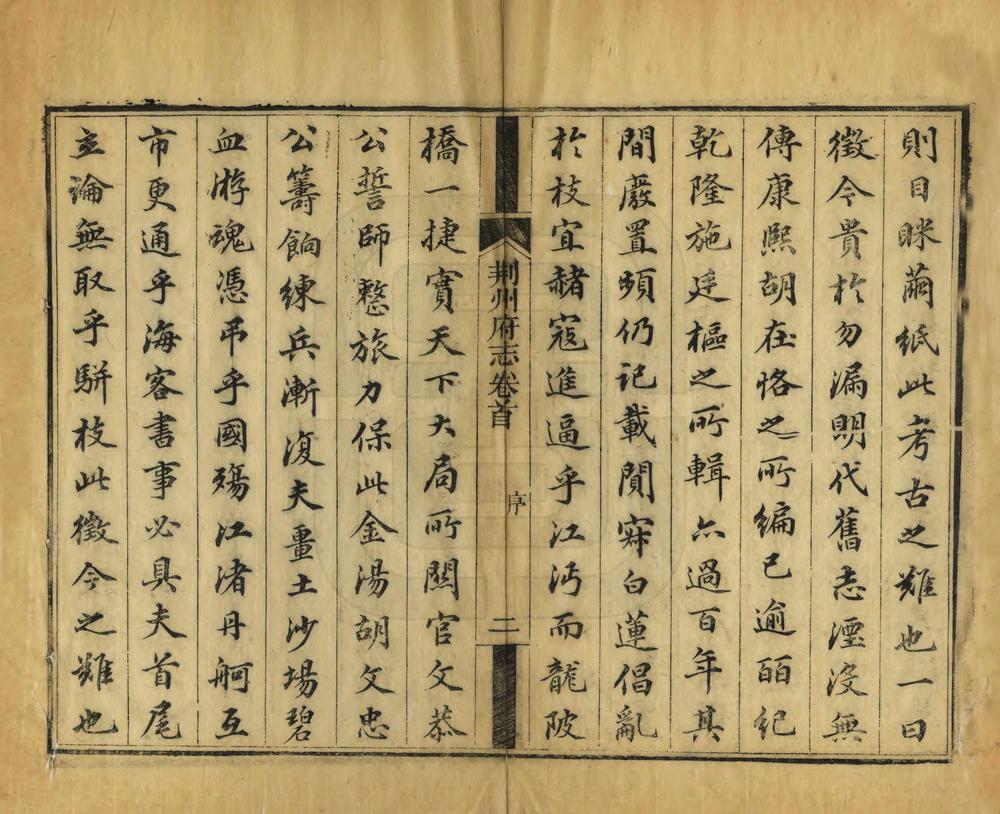 則目眯繭紙此考古之難也一曰
徵今貴於勿漏明代舊志湮没無
傳康熙胡在恪之所編已逾百紀
乾隆施廷樞之所輯亦過百年其
間廢置頻仍記載闃寂白蓮倡亂
於枝宜赭寇進逼乎江沔而龍陂
荆州府志卷首
序
二
橋一捷實天下大局所關官文恭
公誓師整旅力保此金湯胡文忠
公籌餉練兵漸復夫畺土沙場碧
血游魂憑弔乎國殤江渚丹舸互
市更通乎海客書事必具夫首尾
立論無取乎駢枝此徵今之難也